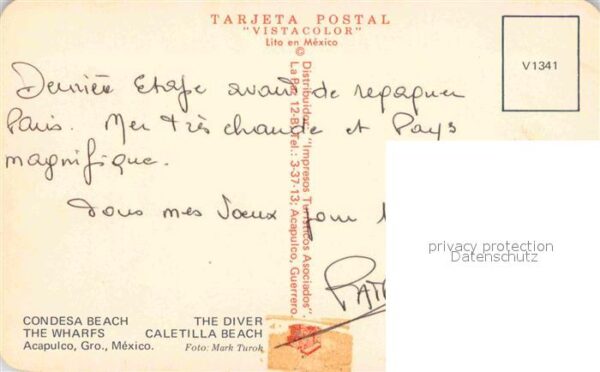 TARJETA POSTAL
"VISTACOLOR"
Lito en México
©
V1341
Distribuidor: "Impresos Turísticos Asociados"
La Paz 12-B Tel.: 3-37-13; Acapulco, Guerrero.
Dernière Etape avant de regagner
Paris. Mer très chaude et Pays
magnifique.
Tous mes Voeux pour
privacy protection
Datenschutz
CONDESA BEACH THE DIVER
THE WHARFS CALETILLA BEACH
Acapulco, Gro., México. Foto: Mark Turok